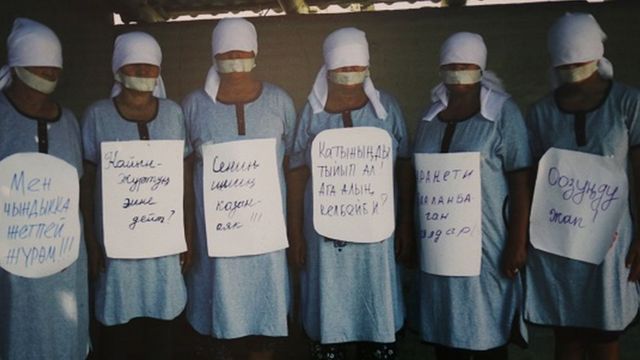 Мен
чындыкка
жетпей
жүрөм!!!
Кайын-
журтуң
эмне
дейт?
Сенин
ишиң
казан-
аяк !!!
Катыныңды
тыйып ал!
Ага алың
келбейби?
ракети
аланба-
ган
ялдар!
Оозуңду
жап!